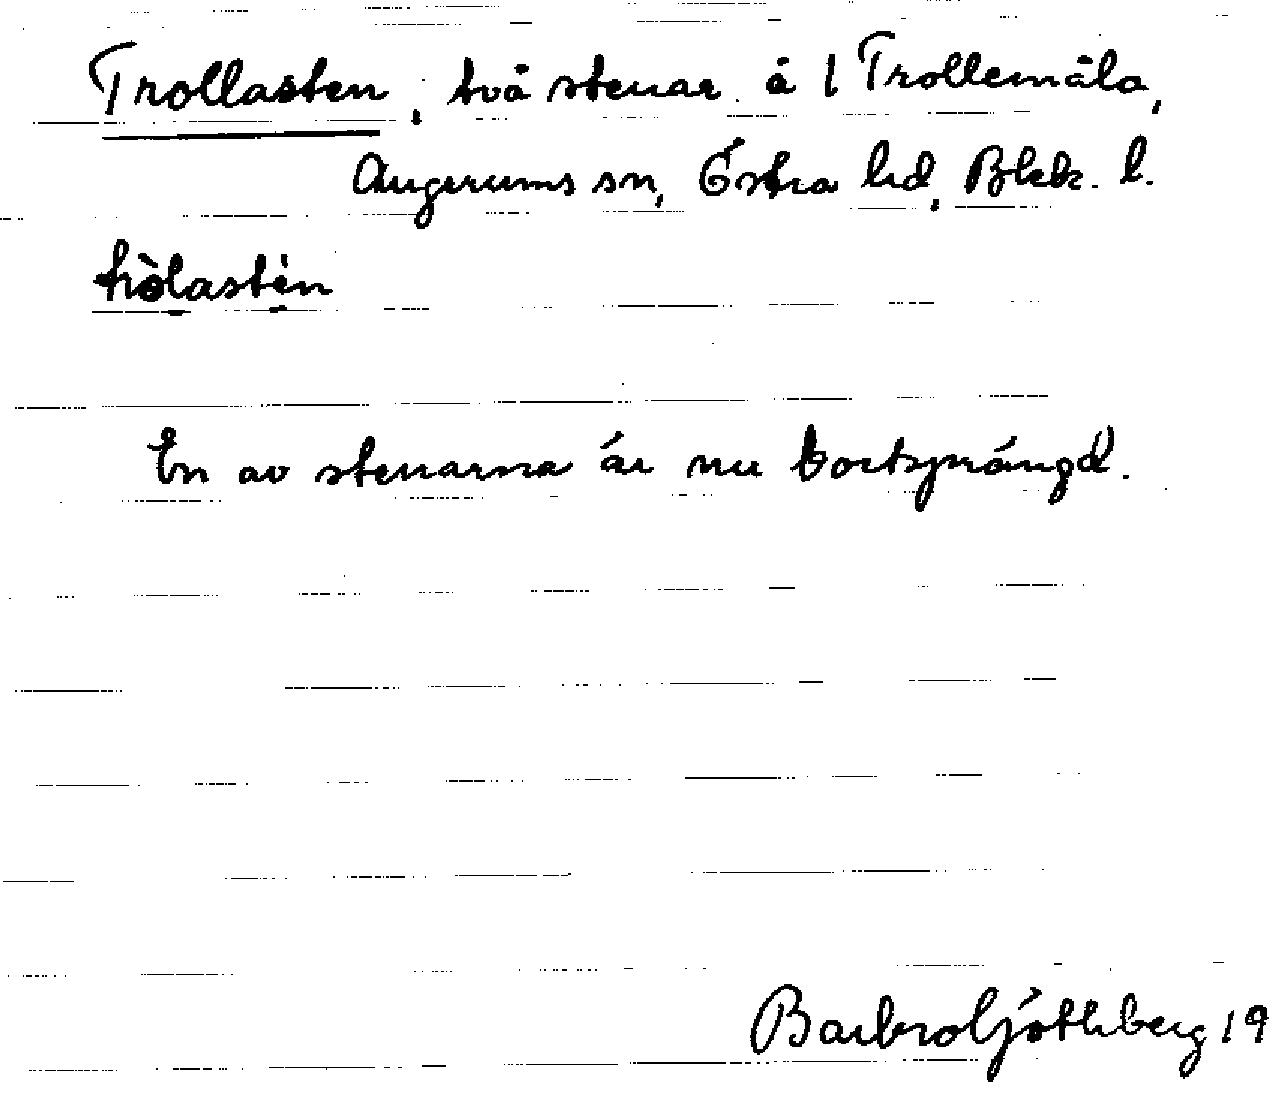 Trollasten, två stenar å 1 Trollemåla,
Augerums sn, Östra hd, Blek. l.
tròlastèn
En av stenarna är nu bortsprängd.
Barbro Göthberg 19